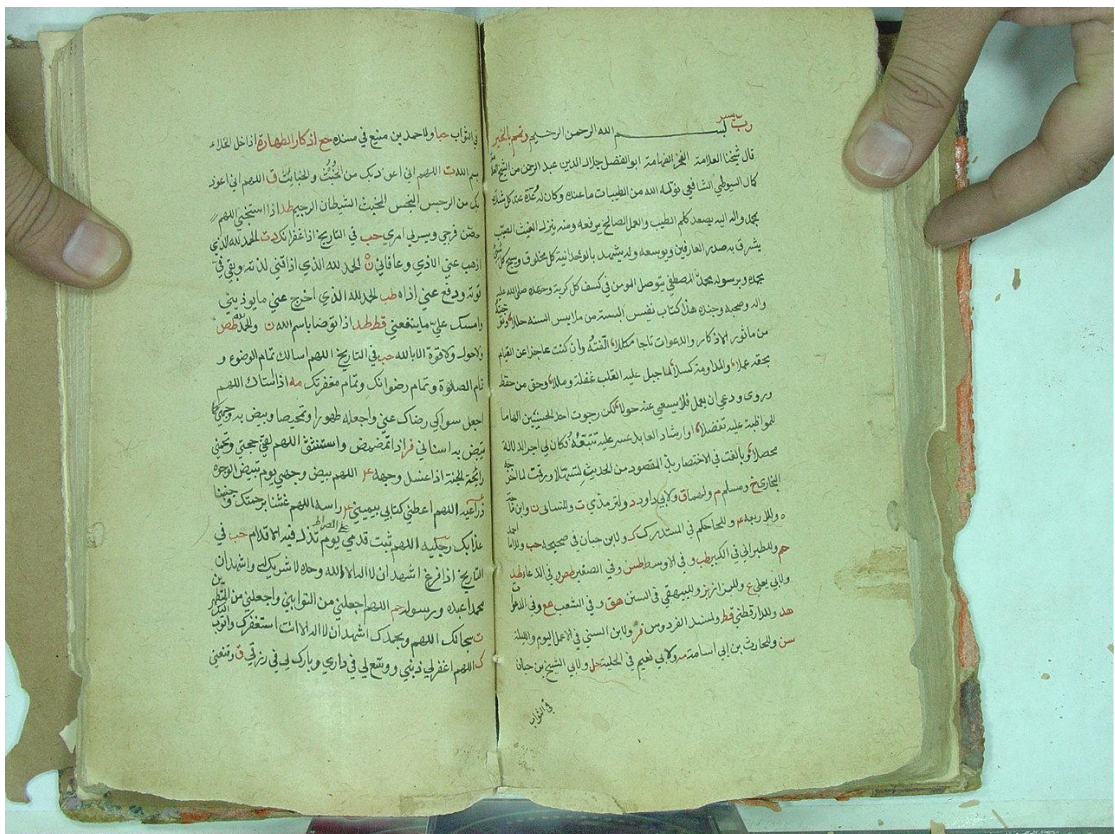 رب يسر بسم الله الرحمن الرحيم وتمم بالخير
قال شيخنا العلامة الفهامة ابو الفضل جلال الدين عبد الرحمن من الشيخ
كمال السيوطي الشافعي الله من الطيبات ما عنك وكان له عدة عند كل شدة
بحمد والله اليه يصعد كلم الطيب والعمل الصالح يرفعه ومنه ينزل الغيث الصيب
يشرق به صدر العارفين ويوسعه وله يشهد بالوحدانية كل مخلوق ويسبح كل شئ
بحمده وبرسوله محمد المصطفى يتوصل المومن في كسف كل كربة صلى الله عليه
واله وصحبه وجنده هذا كتاب نفيس البسته من ملابس السنه حللا
من ماثور الاذكار والدعوات تاجا مكللا الفته وان كنت عاجزا عن القيام
بحقه عملا والمداومة كسلا لما جبل عليه القلب غفلة ومللا وحق من حفظ
وروى ودعي ان يعمل فلا يسعى عنه حولا لكن رجوت احد الحسنيين اما
للمواظبة عليه تفضلا او ارشاد العابد عسر عليه تتبعه فكان لي اجر الدلالة
محصلا وبالغت في الاختصار بذكر المقصود من الحديث ورقمت لما اخرجه
البخاري خ ومسلم م ولهما ق ولابي داود د ولترمذي ت وللنسائى ن وابن ماجه
ه وللاربعة عه وللحاكم في المستدرك ك ولابن حبان في صحيحه حب ولاحمد
حم وللطبراني في الكبير طب وفي الاوسط طس وفي الصغير طص وفي الدعا طد
ولابي يعلي ع وللبزار بز وللبيهقي في السنن هق وفي الشعب هع وفي الدعوات
هد وللدارقطني قط ولمسند الفردوس فر ولابن السني في الاعمل اليوم والليلة
سن وللحارث بن ابي اسامة ولابي نعيم في الحلية حل ولابي الشيخ بن حبان
في الثواب
في الثواب حبا ولاحمد بن منيع في مسنده مع اذكار الطهارة اذا دخل الخلاء
بسم الله ت اللهم اني اعوذ بك من الخبث والخبائث ق اللهم اني اعوذ
بك من الرجس النجس الخبث الشيطان الرجيم طد اذا استنجى اللهم
حصن فرجي ويسر لي امري حب في التاريخ اذا غفرانك دت الحمد لله الذي
اذهب عني الاذي وعافاني ن الحمد لله الذي اذاقني لذته وبقي في
قوته ودفع عني اذاه طب الحمد لله الذي اخرج عني ما يوذيني
وامسك علي ما ينفعني قط طد اذا توضا باسم الله ن والحمد لله طص
ولا حول ولا قوة الا بالله حب في التاريخ اللهم اسالك تمام الوضوء و
تمام الصلوة وتمام رضوانك وتمام مغفرتك مه اذا استاك اللهم
اجعل سواكي رضاك عني واجعله طهورا وتمحيصا وبيض به وجهي كما
تبيض به اسناني فر اذا تمضمض واستنشق اللهم لقني حجتي
رائحة الجنة اذا غسل وجهه اللهم بيض وجهي يوم تبيض الوجوه
ذراعيه اللهم اعطني كتابي بيميني راسه اللهم غشنا برحمتك وجنبنا
عذابك رجليه اللهم ثبت قدمي على الصراط يوم تزل فيه الاقدام حب في
التاريخ اذا فرغ اشهد ان لا اله الا الله وحده لا شريك له واشهد ان
محمدا عبده ورسوله حم اللهم اجعلني من التوابين واجعلني من المتطهرين
ت سبحانك اللهم وبحمدك اشهد ان لا اله الا انت استغفرك واتوب اليك
ك اللهم اغفر لي ذنبي ووسع لي في داري وبارك لي في رزقي ق وقنعني